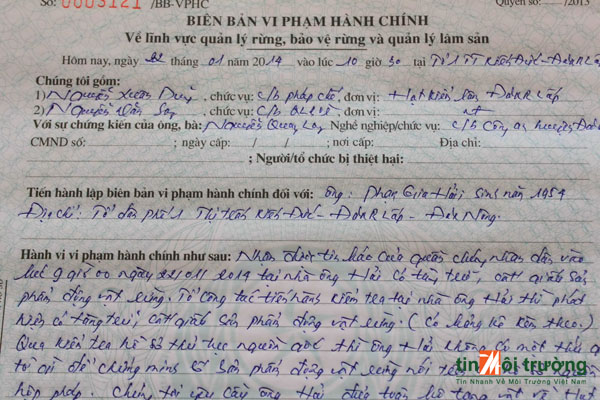 Số: 0003121 /BB-VPHC Quyển số: /2013
BIÊN BẢN VI PHẠM HÀNH CHÍNH
Về lĩnh vực quản lý rừng, bảo vệ rừng và quản lý lâm sản
Hôm nay, ngày 22 tháng 01 năm 2014 vào lúc 10 giờ 30 tại Tổ 1 TT Kiến Đức - Đăk R Lấp
Chúng tôi gồm:
1) Nguyễn Xuân Duy, chức vụ: c/b pháp chế, đơn vị: Hạt Kiểm lâm Đăk R Lấp
2) Nguyễn Văn , chức vụ: c/b , đơn vị: nt
Với sự chứng kiến của ông, bà: Nguyễn Quang Nghề nghiệp/chức vụ: c/b Công an huyện Đăk
CMND số: ; ngày cấp: / / ; nơi cấp: Địa chỉ:
; Người/tổ chức bị thiệt hại:
Tiến hành lập biên bản vi phạm hành chính đối với: ông: Phan Gia Hải, sinh năm 1954
Địa chỉ: Tổ dân phố 1 Thị trấn Kiến Đức - Đăk R Lấp - Đăk Nông.
Hành vi vi phạm hành chính như sau: Nhận được tin báo của quần chúng nhân dân vào
lúc 9 giờ 00 ngày 22/01/2014 tại nhà ông Hải có tàng trữ, cất giấu sản
phẩm động vật rừng. Tổ công tác tiến hành kiểm tra tại nhà ông Hải thì phát
hiện có tàng trữ, cất giấu sản phẩm động vật rừng. (Có bảng kê kèm theo.)
Qua kiểm tra hồ sơ thủ tục nguồn gốc thì ông Hải không có một thủ
tờ gì để chứng minh số sản phẩm động vật rừng nói trên
hợp pháp. Chúng tôi yêu cầu ông Hải tang vật về Hạt
tin Môi trường
Tin Nhanh Về Môi Trường Việt Nam